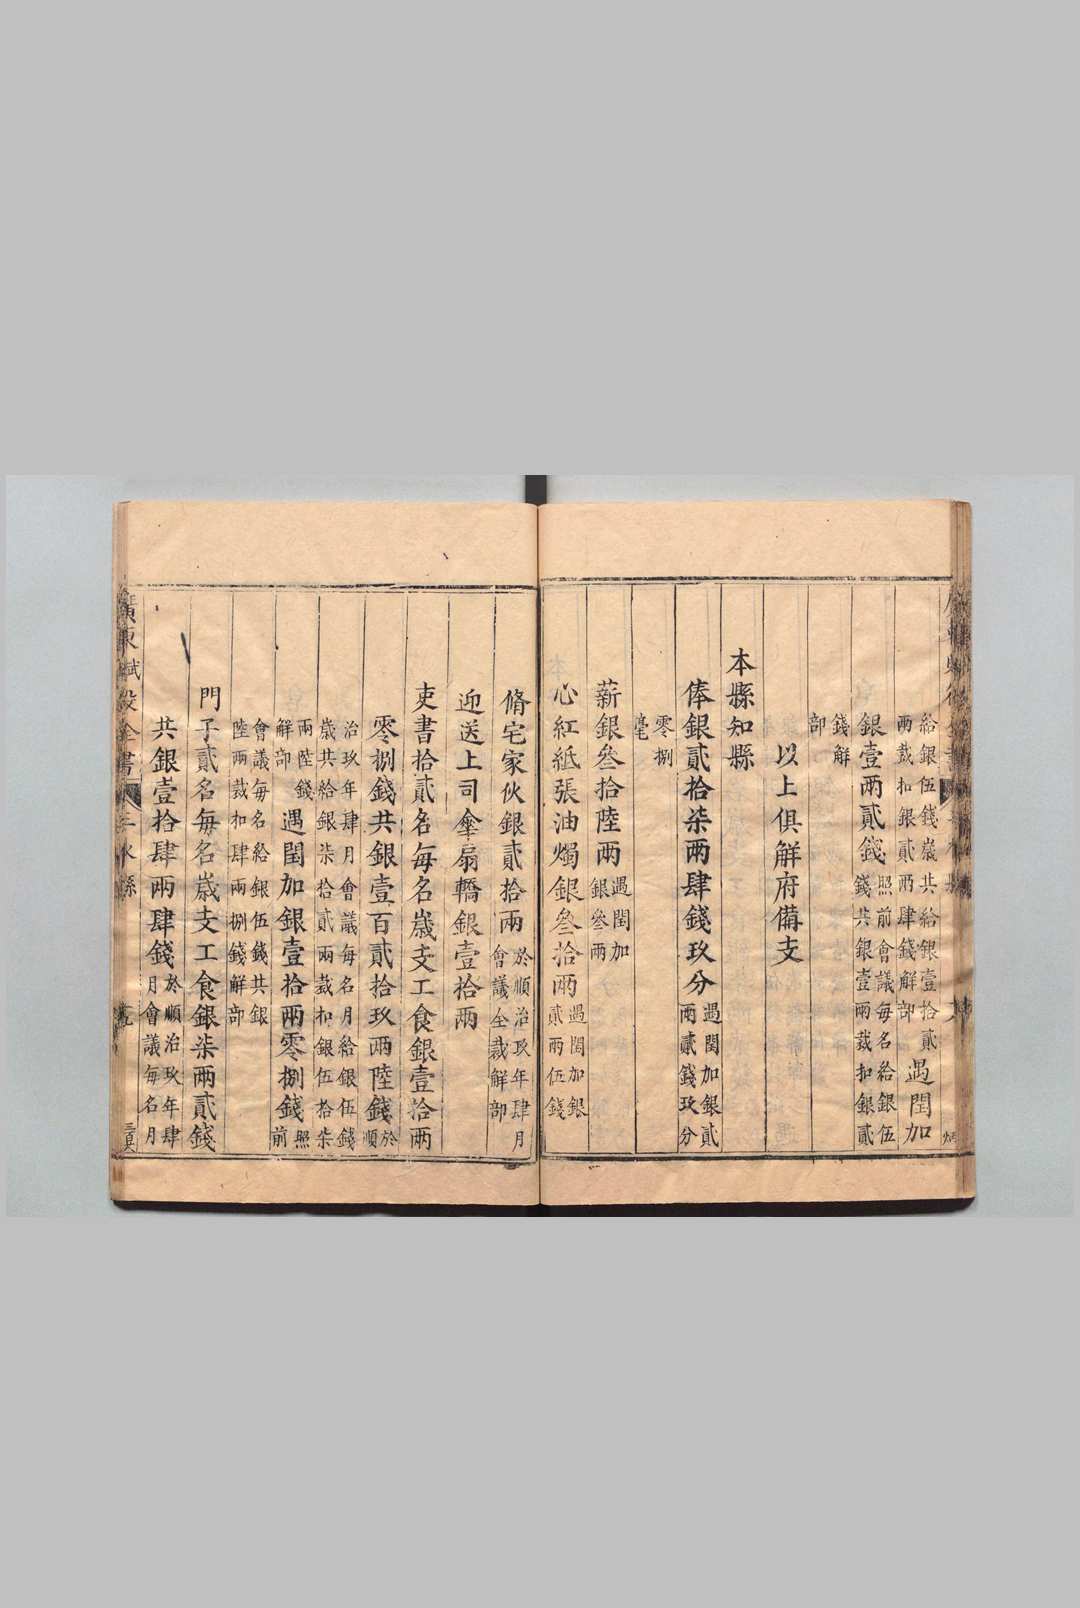 給銀伍錢歲共給銀壹拾貳
兩裁扣銀貳兩肆錢解部
遇閏加
銀壹兩貳錢
照前會議每名給銀伍
錢共銀壹兩裁扣銀貳
錢解
部
以上俱解府備支
本縣知縣
俸銀貳拾柒兩肆錢玖分
遇閏加銀貳
兩貳錢玖分
零捌
毫
薪銀叁拾陸兩
遇閏加
銀叁兩
心紅紙張油燭銀叁拾兩
遇閏加銀
貳兩伍錢
脩宅家伙銀貳拾兩
於順治玖年肆月
會議全裁解部
迎送上司傘扇轎銀壹拾兩
吏書拾貳名每名歲支工食銀壹拾兩
零捌錢共銀壹百貳拾玖兩陸錢
於
順
治玖年肆月會議每名月給銀伍錢
歲共給銀柒拾貳兩裁扣銀伍拾柒
兩陸錢
解部
遇閏加銀壹拾兩零捌錢
照
前
會議每名給銀伍錢共銀
陸兩裁扣肆兩捌錢解部
門子貳名每名歲支工食銀柒兩貳錢
共銀壹拾肆兩肆錢
於順治玖年肆
月會議每名月
廣東賦役全書
三水縣